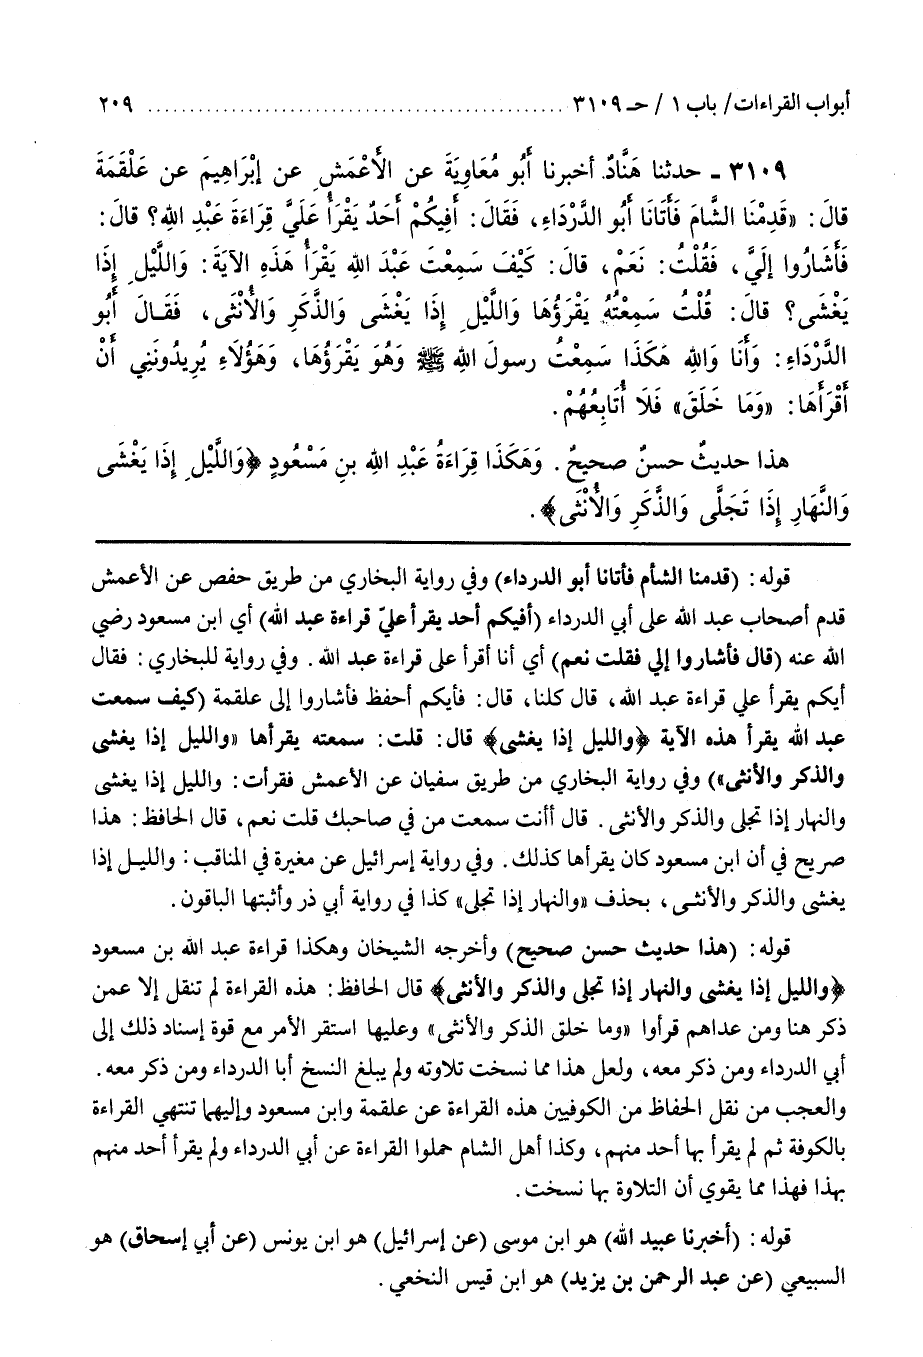 أبواب القراءات/ باب ١ / حـ ٣١٠٩ ................................................ ٢٠٩
٣١٠٩ ـ حدثنا هَنَّادٌ. أخبرنا أَبُو مُعَاوِيَةَ عن الأَعْمَشِ عن إبْرَاهِيمَ عن عَلْقَمَةَ
قالَ: «قَدِمْنَا الشَّامَ فَأَتَانَا أَبُو الدَّرْدَاءِ، فَقَالَ: أَفِيكُمْ أَحَدٌ يَقْرَأُ عَلَيَّ قِرَاءَةَ عَبْدِ اللهِ؟ قالَ:
فَأَشَارُوا إلَيَّ، فَقُلْتُ: نَعَمْ، قالَ: كَيْفَ سَمِعْتَ عَبْدَ اللهِ يَقْرَأُ هَذِهِ الآيَةَ: وَاللَّيْلِ إذَا
يَغْشَى؟ قالَ: قُلْتُ سَمِعْتُهُ يَقْرَؤُهَا وَاللَّيْلِ إذَا يَغْشَى وَالذَّكَرِ وَالأُنْثَى، فَقَـالَ أَبُو
الدَّرْدَاءِ: وَأَنَا وَاللهِ هَكَذَا سَمِعْتُ رسولَ اللهِ ﷺ وَهُوَ يَقْرَؤُهَا، وَهَؤُلَاءِ يُرِيدُونَنِي أَنْ
أَقْرَأَهَا: «وَمَا خَلَقَ» فَلَا أُتَابِعُهُمْ.
هذا حديثٌ حسنٌ صحيحٌ. وَهَكَذَا قِرَاءَةُ عَبْدِ اللهِ بنِ مَسْعُودٍ ﴿وَاللَّيْلِ إذَا يَغْشَى
وَالنَّهَارِ إذَا تَجَلَّى وَالذَّكَرِ وَالأُنْثَى﴾.
قوله: (قدمنا الشأم فأتانا أبو الدرداء) وفي رواية البخاري من طريق حفص عن الأعمش
قدم أصحاب عبد الله على أبي الدرداء (أفيكم أحد يقرأ عليّ قراءة عبد الله) أي ابن مسعود رضي
الله عنه (قال فأشاروا إلي فقلت نعم) أي أنا أقرأ على قراءة عبد الله. وفي رواية للبخاري: فقال
أيكم يقرأ علي قراءة عبد الله، قال كلنا، قال: فأيكم أحفظ فأشاروا إلى علقمة (كيف سمعت
عبد الله يقرأ هذه الآية ﴿والليل إذا يغشى﴾ قال: قلت: سمعته يقرأها «والليل إذا يغشى
والذكر والأنثى») وفي رواية البخاري من طريق سفيان عن الأعمش فقرأت: والليل إذا يغشى
والنهار إذا تجلى والذكر والأنثى. قال أأنت سمعت من في صاحبك قلت نعم، قال الحافظ: هذا
صريح في أن ابن مسعود كان يقرأها كذلك. وفي رواية إسرائيل عن مغيرة في المناقب: والليـل إذا
يغشى والذكر والأنثـى، بحذف «والنهار إذا تجلى» كذا في رواية أبي ذر وأثبتها الباقون.
قوله: (هذا حديث حسن صحيح) وأخرجه الشيخان وهكذا قراءة عبد الله بن مسعود
﴿والليل إذا يغشى والنهار إذا تجلى والذكر والأنثى﴾ قال الحافظ: هذه القراءة لم تنقل إلا عمن
ذكر هنا ومن عداهم قرأوا «وما خلق الذكر والأنثى» وعليها استقر الأمر مع قوة إسناد ذلك إلى
أبي الدرداء ومن ذكر معه، ولعل هذا مما نسخت تلاوته ولم يبلغ النسخ أبا الدرداء ومن ذكر معه.
والعجب من نقل الحفاظ من الكوفيين هذه القراءة عن علقمة وابن مسعود وإليهما تنتهي القراءة
بالكوفة ثم لم يقرأ بها أحد منهم، وكذا أهل الشام حملوا القراءة عن أبي الدرداء ولم يقرأ أحد منهم
بهذا فهذا مما يقوي أن التلاوة بها نسخت.
قوله: (أخبرنا عبيد الله) هو ابن موسى (عن إسرائيل) هو ابن يونس (عن أبي إسحاق) هو
السبيعي (عن عبد الرحمن بن يزيد) هو ابن قيس النخعي.